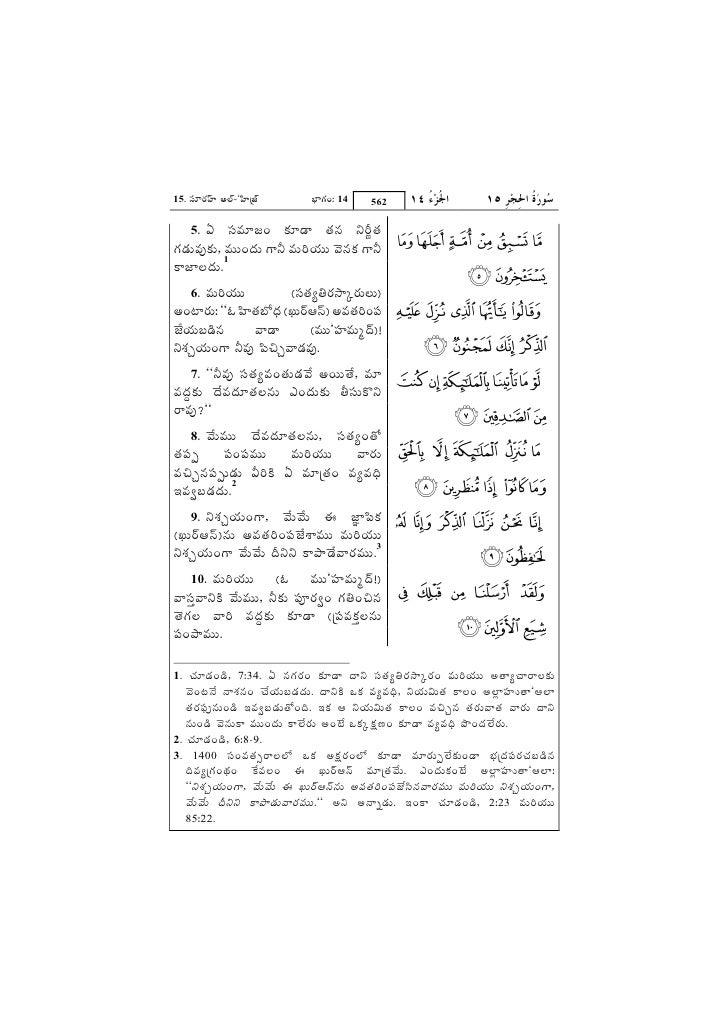 15. సూరహ్ అల్-'హిజ్ర్ భాగం: 14 562 الجُزْءُ ١٤ سُورَةُ الحِجْرِ ١٥
5. ఏ సమాజం కూడా తన నిర్ణీత
గడువుకు, ముందు గానీ మరియు వెనక గానీ
కాజాలదు.1
6. మరియు (సత్యతిరస్కారులు)
అంటారు: ‘‘ఓ హితబోధ (ఖుర్ఆన్) అవతరింప
జేయబడిన వాడా (ము'హమ్మద్)!
నిశ్చయంగా నీవు పిచ్చివాడవు.
7. ‘‘నీవు సత్యవంతుడవే అయితే, మా
వద్దకు దేవదూతలను ఎందుకు తీసుకొని
రావు?‘‘
8. మేము దేవదూతలను, సత్యంతో
తప్ప పంపము మరియు వారు
వచ్చినప్పుడు వీరికి ఏ మాత్రం వ్యవధి
ఇవ్వబడదు.2
9. నిశ్చయంగా, మేమే ఈ జ్ఞాపిక
(ఖుర్ఆన్)ను అవతరింపజేశాము మరియు
నిశ్చయంగా మేమే దీనిని కాపాడేవారము.3
10. మరియు (ఓ ము'హమ్మద్!)
వాస్తవానికి మేము, నీకు పూర్వం గతించిన
తెగల వారి వద్దకు కూడా (ప్రవక్తలను
పంపాము.
مَّا تَسْبِقُ مِنْ أُمَّةٍ أَجَلَهَا وَمَا
يَسْتَـْٔخِرُونَ ٥
وَقَالُوا۟ يَـٰٓأَيُّهَا ٱلَّذِى نُزِّلَ عَلَيْهِ
ٱلذِّكْرُ إِنَّكَ لَمَجْنُونٌ ٦
لَّوْ مَا تَأْتِينَا بِٱلْمَلَـٰٓئِكَةِ إِن كُنتَ
مِنَ ٱلصَّـٰدِقِينَ ٧
مَا نُنَزِّلُ ٱلْمَلَـٰٓئِكَةَ إِلَّا بِٱلْحَقِّ
وَمَا كَانُوٓا۟ إِذًا مُّنظَرِينَ ٨
إِنَّا نَحْنُ نَزَّلْنَا ٱلذِّكْرَ وَإِنَّا لَهُۥ
لَحَـٰفِظُونَ ٩
وَلَقَدْ أَرْسَلْنَا مِن قَبْلِكَ فِى
شِيَعِ ٱلْأَوَّلِينَ ١٠
1. చూడండి, 7:34. ఏ నగరం కూడా దాని సత్యతిరస్కారం మరియు అత్యాచారాలకు
వెంటనే నాశనం చేయబడదు. దానికి ఒక వ్యవధి, నియమిత కాలం అల్లాహుతా'ఆలా
తరఫునుండి ఇవ్వబడుతోంది. ఇక ఆ నియమిత కాలం వచ్చిన తరువాత వారు దాని
నుండి వెనుకా ముందు కాలేరు అంటే ఒక్క క్షణం కూడా వ్యవధి పొందలేరు.
2. చూడండి, 6:8-9.
3. 1400 సంవత్సరాలలో ఒక అక్షరంలో కూడా మార్పులేకుండా భద్రపరచబడిన
దివ్యగ్రంథం కేవలం ఈ ఖుర్ఆన్ మాత్రమే. ఎందుకంటే అల్లాహుతా'ఆలా:
‘‘నిశ్చయంగా, మేమే ఈ ఖుర్ఆన్‌ను అవతరింపజేసినవారము మరియు నిశ్చయంగా,
మేమే దీనిని కాపాడువారము.‘‘ అని అన్నాడు. ఇంకా చూడండి, 2:23 మరియు
85:22.